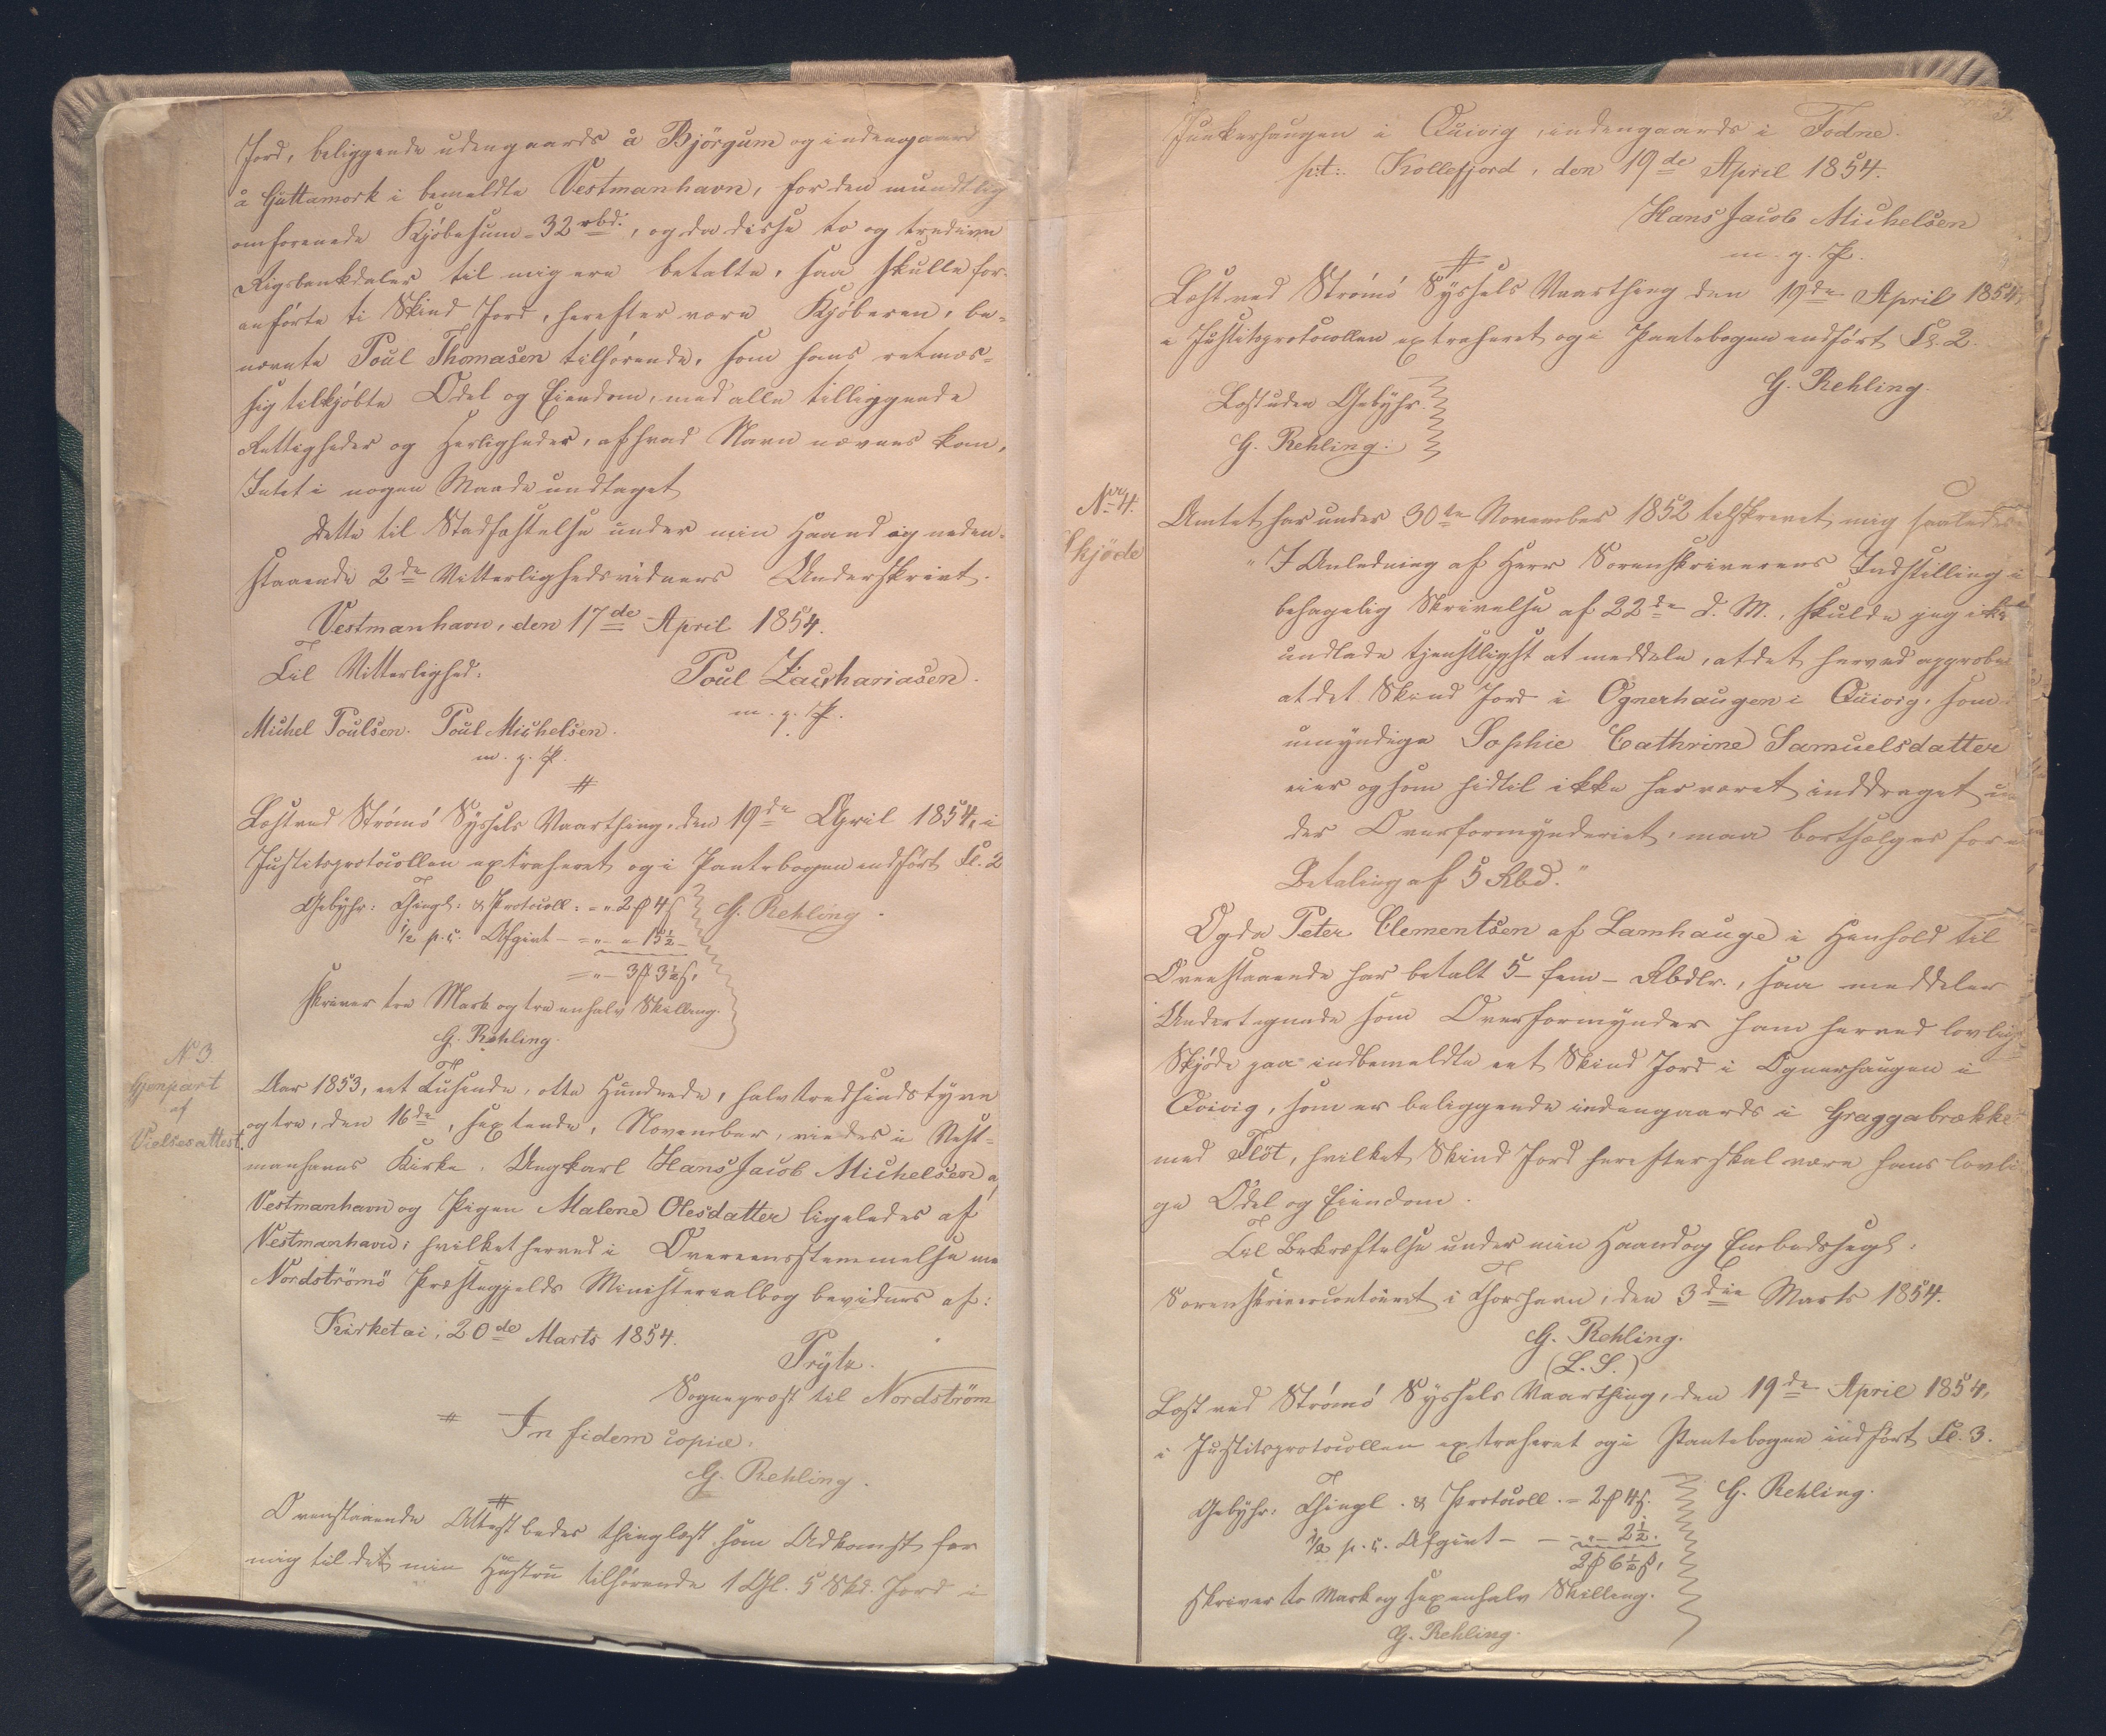 Jord, beliggende udengaards å Björgum og indengaard
å Gøttamork i bemeldte Vestmanhavn, for den mundtlig
omforenede Kjøbesum = 32 rbd., og da disse to og tredive
Rigsbankdaler til mig ere betalte, saa skulle for-
anførte ti Skind Jord, herefter være Kjøberen, be-
nævnte Poul Thomasen tilhørende, som hans retmæs-
sig tilkjøbte Odel og Eiendom, med alle tilliggende
Rettigheder og Herligheder, af hvad Navn nævnes kan,
Intet i nogen Maade undtaget
Dette til Stadfæstelse under min Haand og neden-
staaende 2de Vitterlighedsvidners Underskrivt.
Vestmanhavn, den 17de April 1854.
Til Vitterlighed:
Poul Zachariasen.
Michel Poulsen. Poul Michelsen.
m. p.
Læst ved Strømø Syssels Vaarthing, den 19de April 1854, i
Justitsprotocollen extraheret og i Pantebogen indført Fl. 2
Gebyhr: Thingl: & Protocoll: = „ 2 ₰ 4 ß G. Rehling.
½ p. c. Afgivt - = „ - „ 15½ -
= „ - 3 ₰ 3½ ß,
skriver tre Mark og tre enhalv Skilling.
G. Rehling.
N. 3
Gjenpart
af
Vielsesattest.
Aar 1853, eet Tusinde, otte Hundrede, halvtredsindstyve
og tre, den 16de, sextende, November, viedes i Vest-
manhavns Kirke, Ungkarl Hans Jacob Michelsen af
Vestmanhavn og Pigen Malene Olesdatter ligeledes af
Vestmanhavn; hvilket herved i Overeensstemmelse me
Nordströmö Præstegjelds Ministerialbog bevidnes af:
Kirketai, 20de Marts 1854.
Prÿtz.
Sognepræst til Nordström
In fidem copiæ.
G. Rehling.
Ovenstaaende Attest bedes thinglæst som Adkomst for
mig til det min Hustru tilhørende 1 Gl. 5 Skd. Jord i
Junkerhaugen i Qüivig, indengaards i Todne.
p:t: Kollefjord, den 19de April 1854.
Hans Jacob Michelsen
m. p.
Læst ved Strømø Syssels Vaarthing den 19de April 1854,
i Justitsprotocollen extraheret og i Pantebogen indført Fl. 2.
G. Rehling.
Læst uden Gebyhr.
G. Rehling.
Nr. 4.
Skjöde
Amtet har under 30te November 1852 tilskrevet mig saaledes:
"I Anledning af Herr Sorenskriverens Indstilling i
behagelig Skrivelse af 22de d. M., skulde jeg ikke
undlade tjenstligst at meddele, at det herved approbe
at det Skind Jord i Ognerhaugen i Qüivig, som
umyndige Sophie Cathrine Samuelsdatter
eier og som hidtil ikke har været inddraget un
der Overformynderiet, maa bortsælges for e
Betaling af 5 Rbd."
Og da Peter Clementsen af Lamhauge i Henhold til
Ovenstaaende har betalt 5 - fem - Rbdlr., saa meddeler
Undertegnede som Overformynder ham herved lovligt
Skjöde paa indbemeldte eet Skind Jord i Ognerhaugen i
Qvivig, som er beliggende indengaards i Graggabrække
med Flöt, hvilket Skind Jord herefter skal være hans lovli
ge Odel og Eiendom.
Til Bekræftelse under min Haand og Embedssegl:
Sorenskrivercontoiret i Thorshavn, den 3die Marts 1854.
G. Rehling.
(L. S.)
Læst ved Strømø Syssels Vaarthing, den 19de April 1854,
i Justitsprotocollen extraheret og i Pantebogen indført Fl. 3.
Gebyhr: Thingl. & Protocoll. = 2 ₰ 4 ß. G. Rehling.
½ p. c. Afgivt - - - „ - 2½.
2 ₰ 6½ ß,
skriver to Mark og sex enhalv Skilling.
G. Rehling.